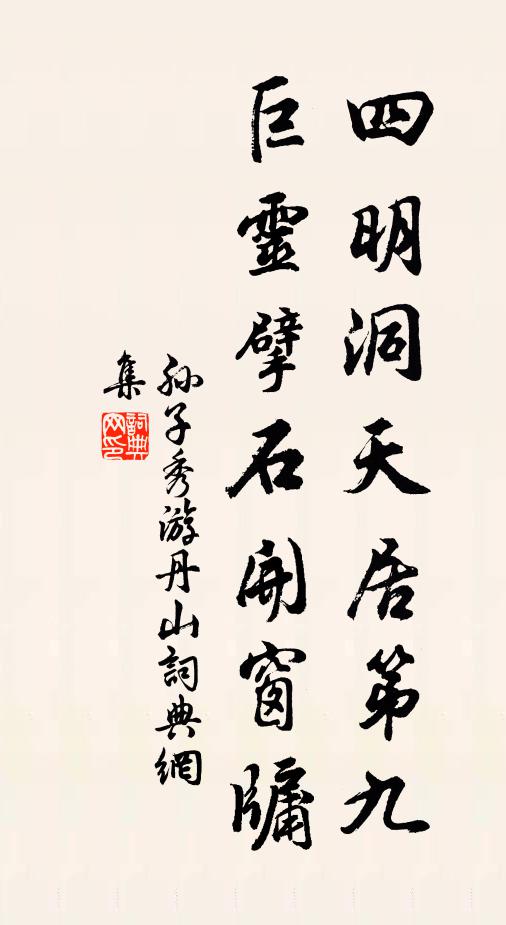 四明洞天居第九
巨靈擘石開窗牖
孙子秀游丹山詞典網
集
詞典网印